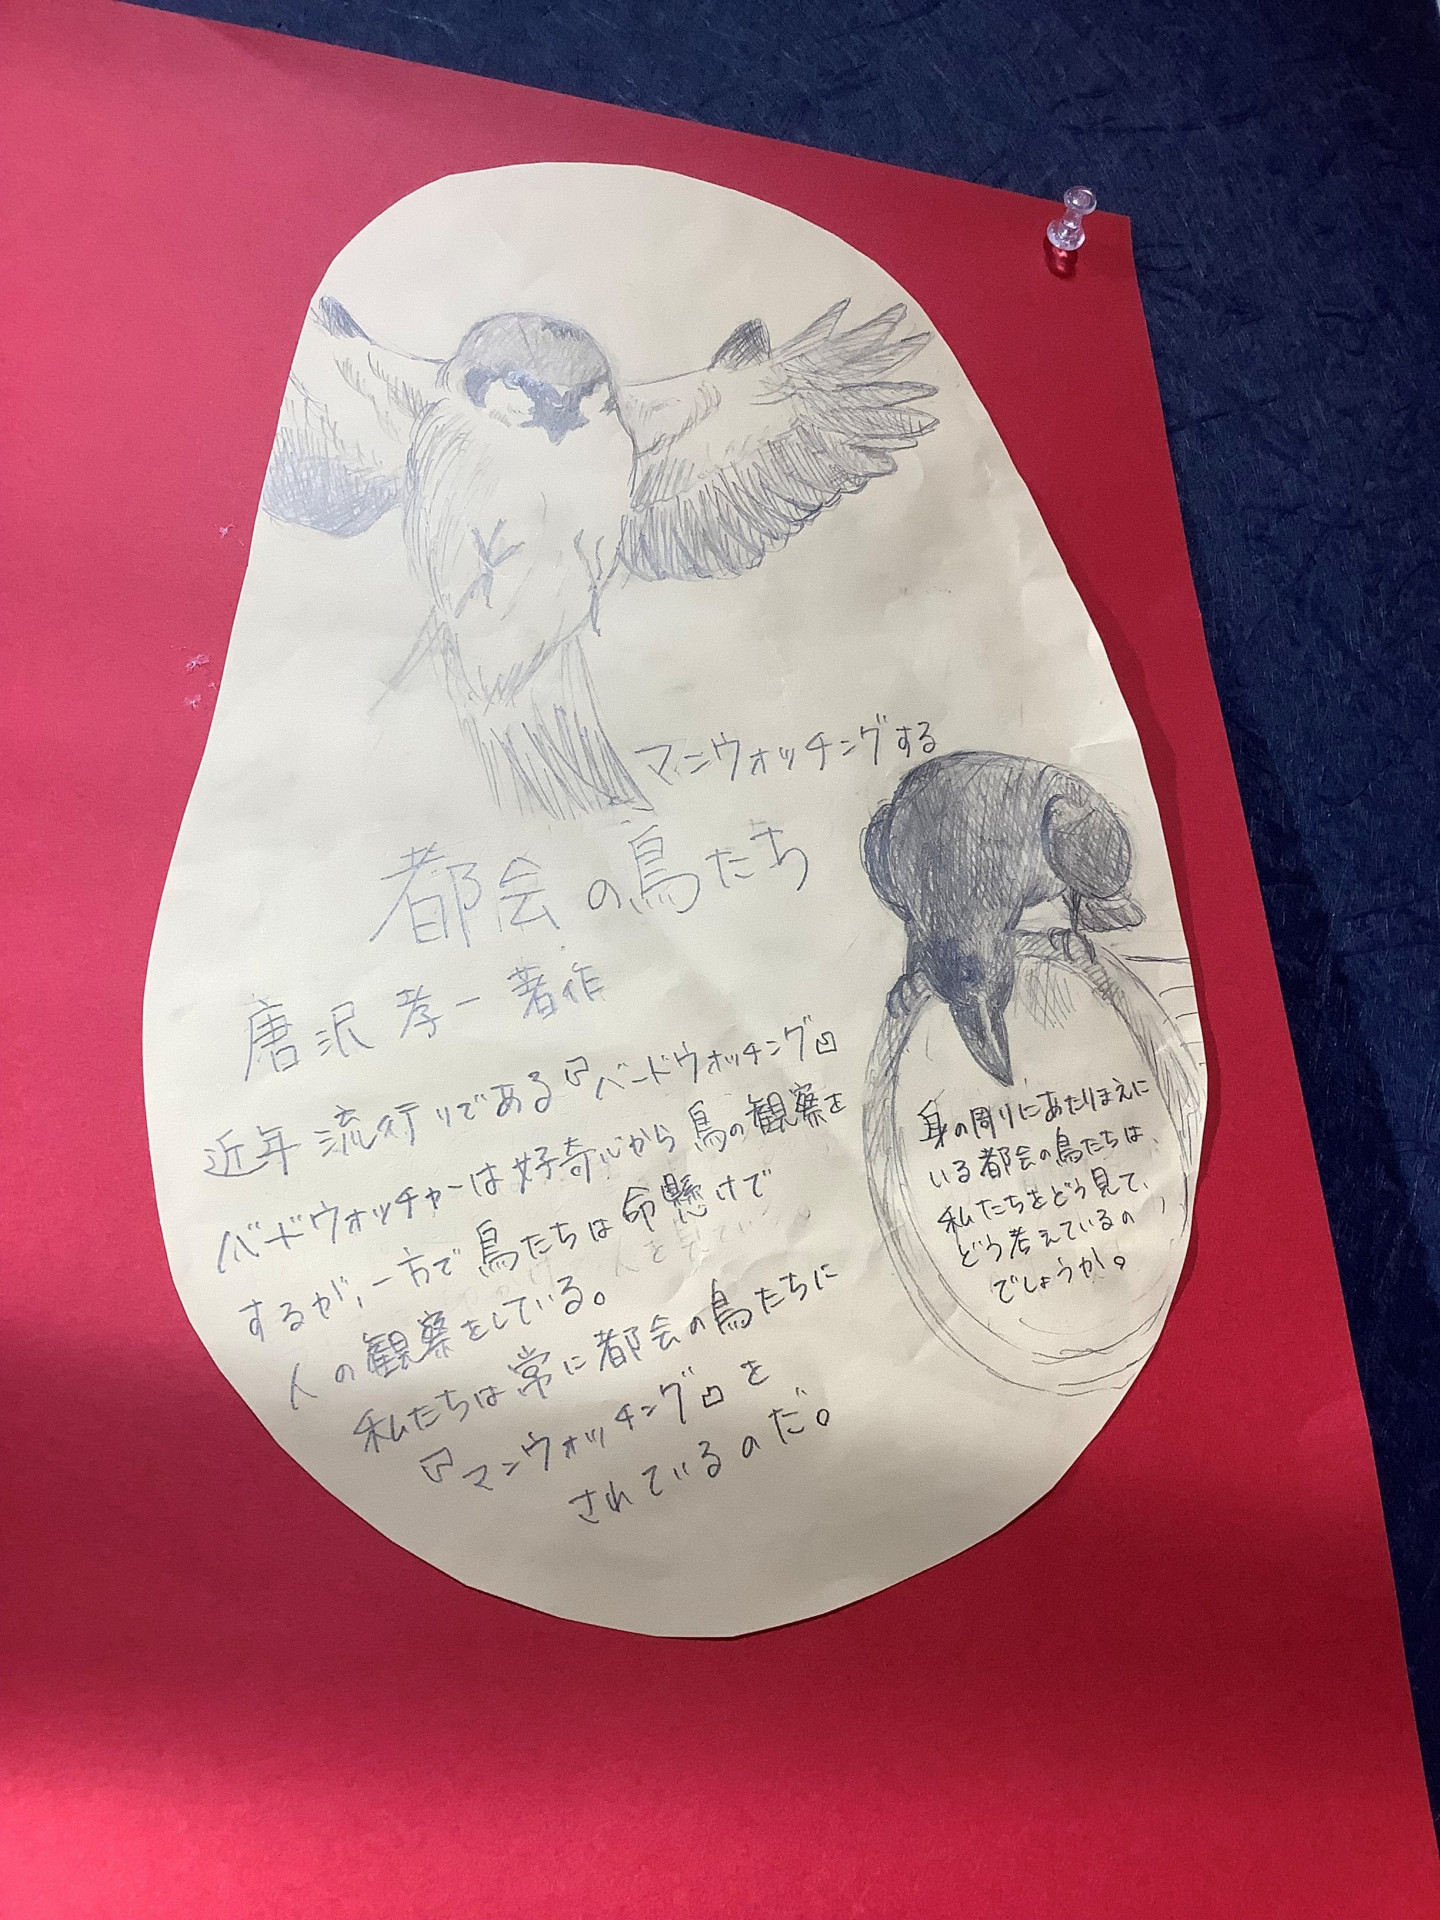 マンウォッチングする
都会の鳥たち
唐沢孝一著作
近年流行りである『バードウォッチング』
バードウォッチャーは好奇心から鳥の観察を
するが、一方で鳥たちは命懸けで
人の観察をしている。
私たちは常に都会の鳥たちに
『マンウォッチング』を
されているのだ。
身の周りにあたりまえに
いる都会の鳥たちは、
私たちをどう見て、
どう考えているの
でしょうか。